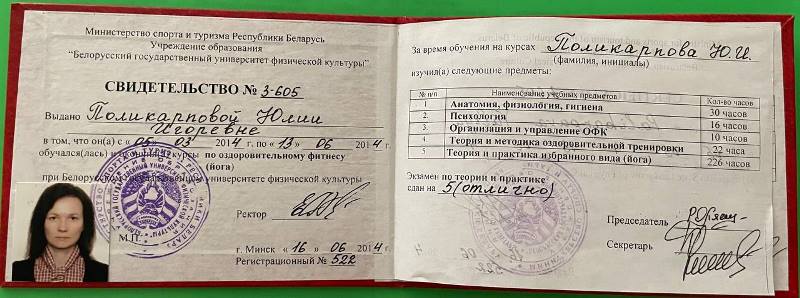 Министерство спорта и туризма Республики Беларусь
Учреждение образования
"Белорусский государственный университет физической культуры"
СВИДЕТЕЛЬСТВО № 3-605
Выдано Поликарповой Юлии
Игоревне
в том, что он(а) с «05» 03 2014 г. по «13» 06 2014 г.
обучался(лась) на курсы по оздоровительному фитнесу
(йога)
при Белорусском государственном университете физической культуры
Ректор
М.П.
г. Минск «16» 06 2014 г.
Регистрационный № 522
За время обучения на курсах Поликарпова Ю.И.
(фамилия, инициалы)
изучил(а) следующие предметы:
№ п/п Наименование учебных предметов Кол-во часов
1 Анатомия, физиология, гигиена 30 часов
2 Психология 16 часов
3 Организация и управление ОФК 10 часов
4 Теория и методика оздоровительной тренировки 22 часа
5 Теория и практика избранного вида (йога) 226 часов
Экзамен по теории и практике
сдан на 5 (отлично)
Председатель
Секретарь